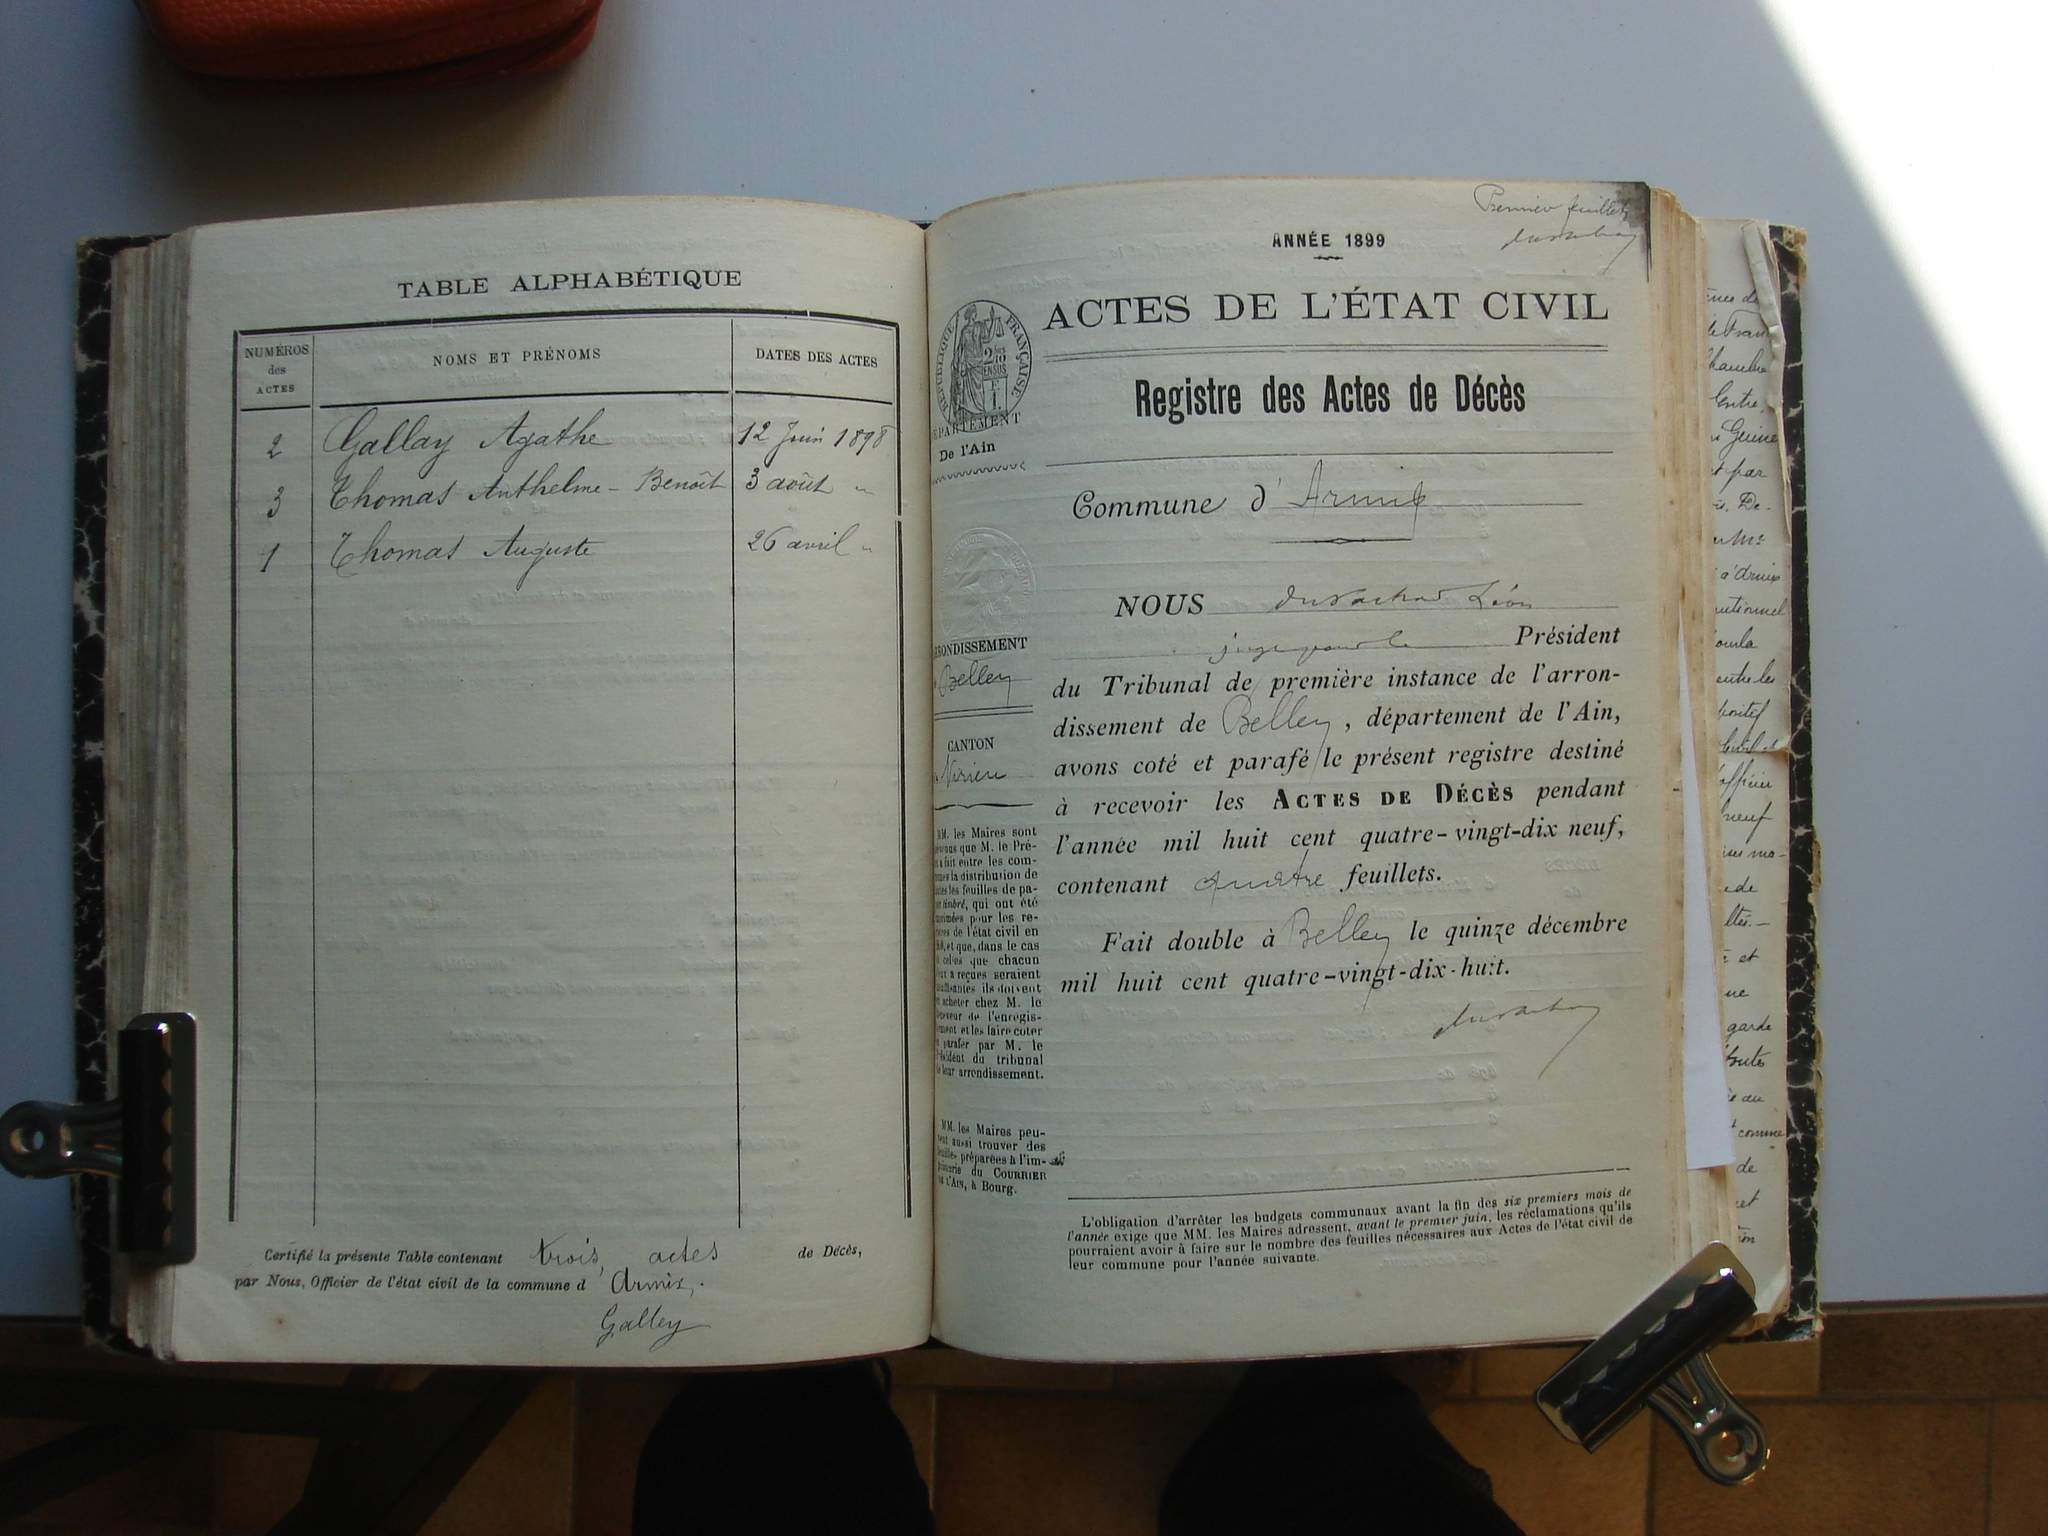 TABLE ALPHABÉTIQUE
NUMÉROS
des
ACTES
NOMS ET PRÉNOMS
DATES DES ACTES
2 Gallay Agathe 12 Juin 1898
3 Thomas Anthelme-Benoît 3 août "
1 Thomas Auguste 26 avril "
Certifié la présente Table contenant trois actes de Décès,
par Nous, Officier de l'état civil de la commune d'Armix.
Galley
Premier feuillet
ANNÉE 1899
ACTES DE L'ÉTAT CIVIL
RÉPUBLIQUE FRANÇAISE
DÉPARTEMENT
De l'Ain
Registre des Actes de Décès
Commune d'Armix
NOUS Léon
Président
du Tribunal de première instance de l'arron-
dissement de Belley, département de l'Ain,
avons coté et parafé le présent registre destiné
à recevoir les ACTES DE DÉCÈS pendant
l'année mil huit cent quatre-vingt-dix neuf,
contenant quatre feuillets.
Fait double à Belley le quinze décembre
mil huit cent quatre-vingt-dix-huit.
RONDISSEMENT
Belley
CANTON
Virieu
MM. les Maires sont
que M. le Pré-
a fait entre les com-
la distribution de
les feuilles de pa-
timbré, qui ont été
pour les re-
de l'état civil en
et que, dans le cas
celles que chacun
a reçues seraient
ils doivent
acheter chez M. le
de l'enregis-
et les faire coter
parafer par M. le
Président du tribunal
leur arrondissement.
MM. les Maires peu-
aussi trouver des
préparées à l'im-
du COURRIER
L'AIN, à Bourg.
L'obligation d'arrêter les budgets communaux avant la fin des six premiers mois de
l'année exige que MM. les Maires adressent, avant le premier juin, les réclamations qu'ils
pourraient avoir à faire sur le nombre des feuilles nécessaires aux Actes de l'état civil de
leur commune pour l'année suivante.
et par
De-
à armix
ourla
entre les
neuf
et
garde
toutes
au
comme
de